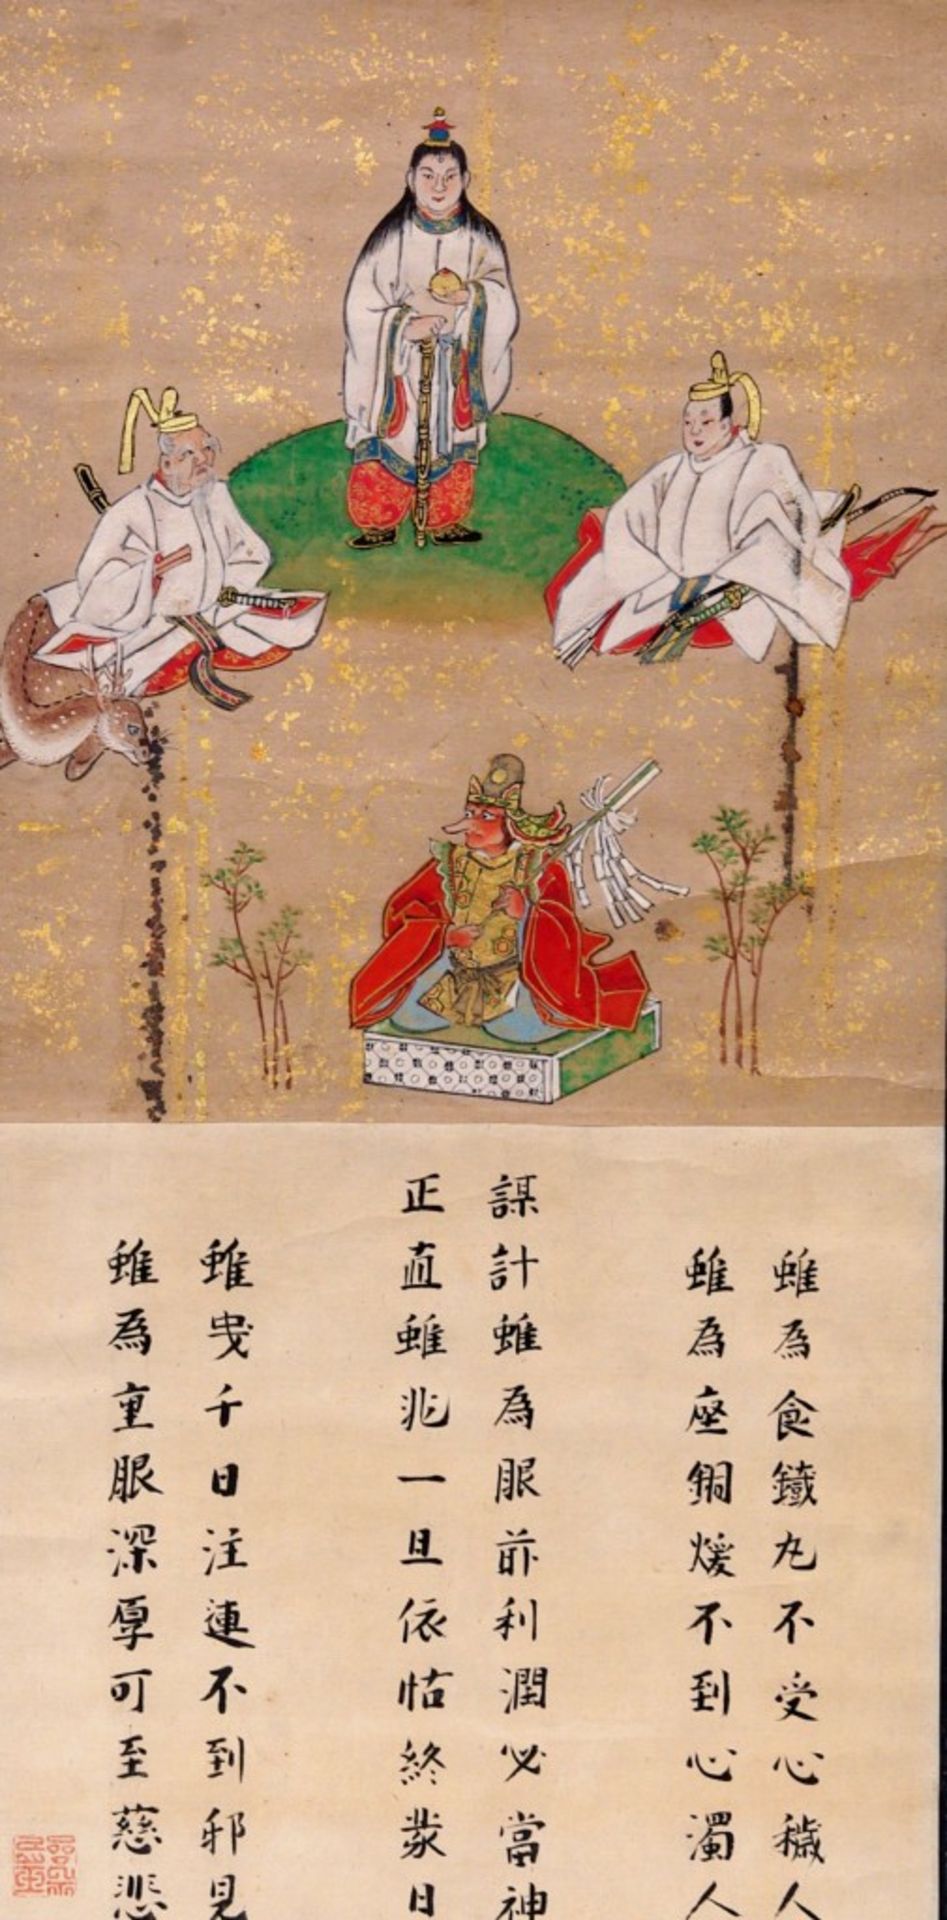 雖為食鐵丸不受心穢人
雖為座銅煖不到心濁人
謀計雖為眼前利潤必當神
正直雖非一旦依怙終蒙日
雖曳千日注連不到邪見
雖為重服深厚可至慈悲